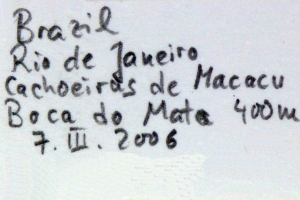 Brazil
Rio de Janeiro
Cachoeiras de Macacu
Boca do Mato 400m
7. III. 2006